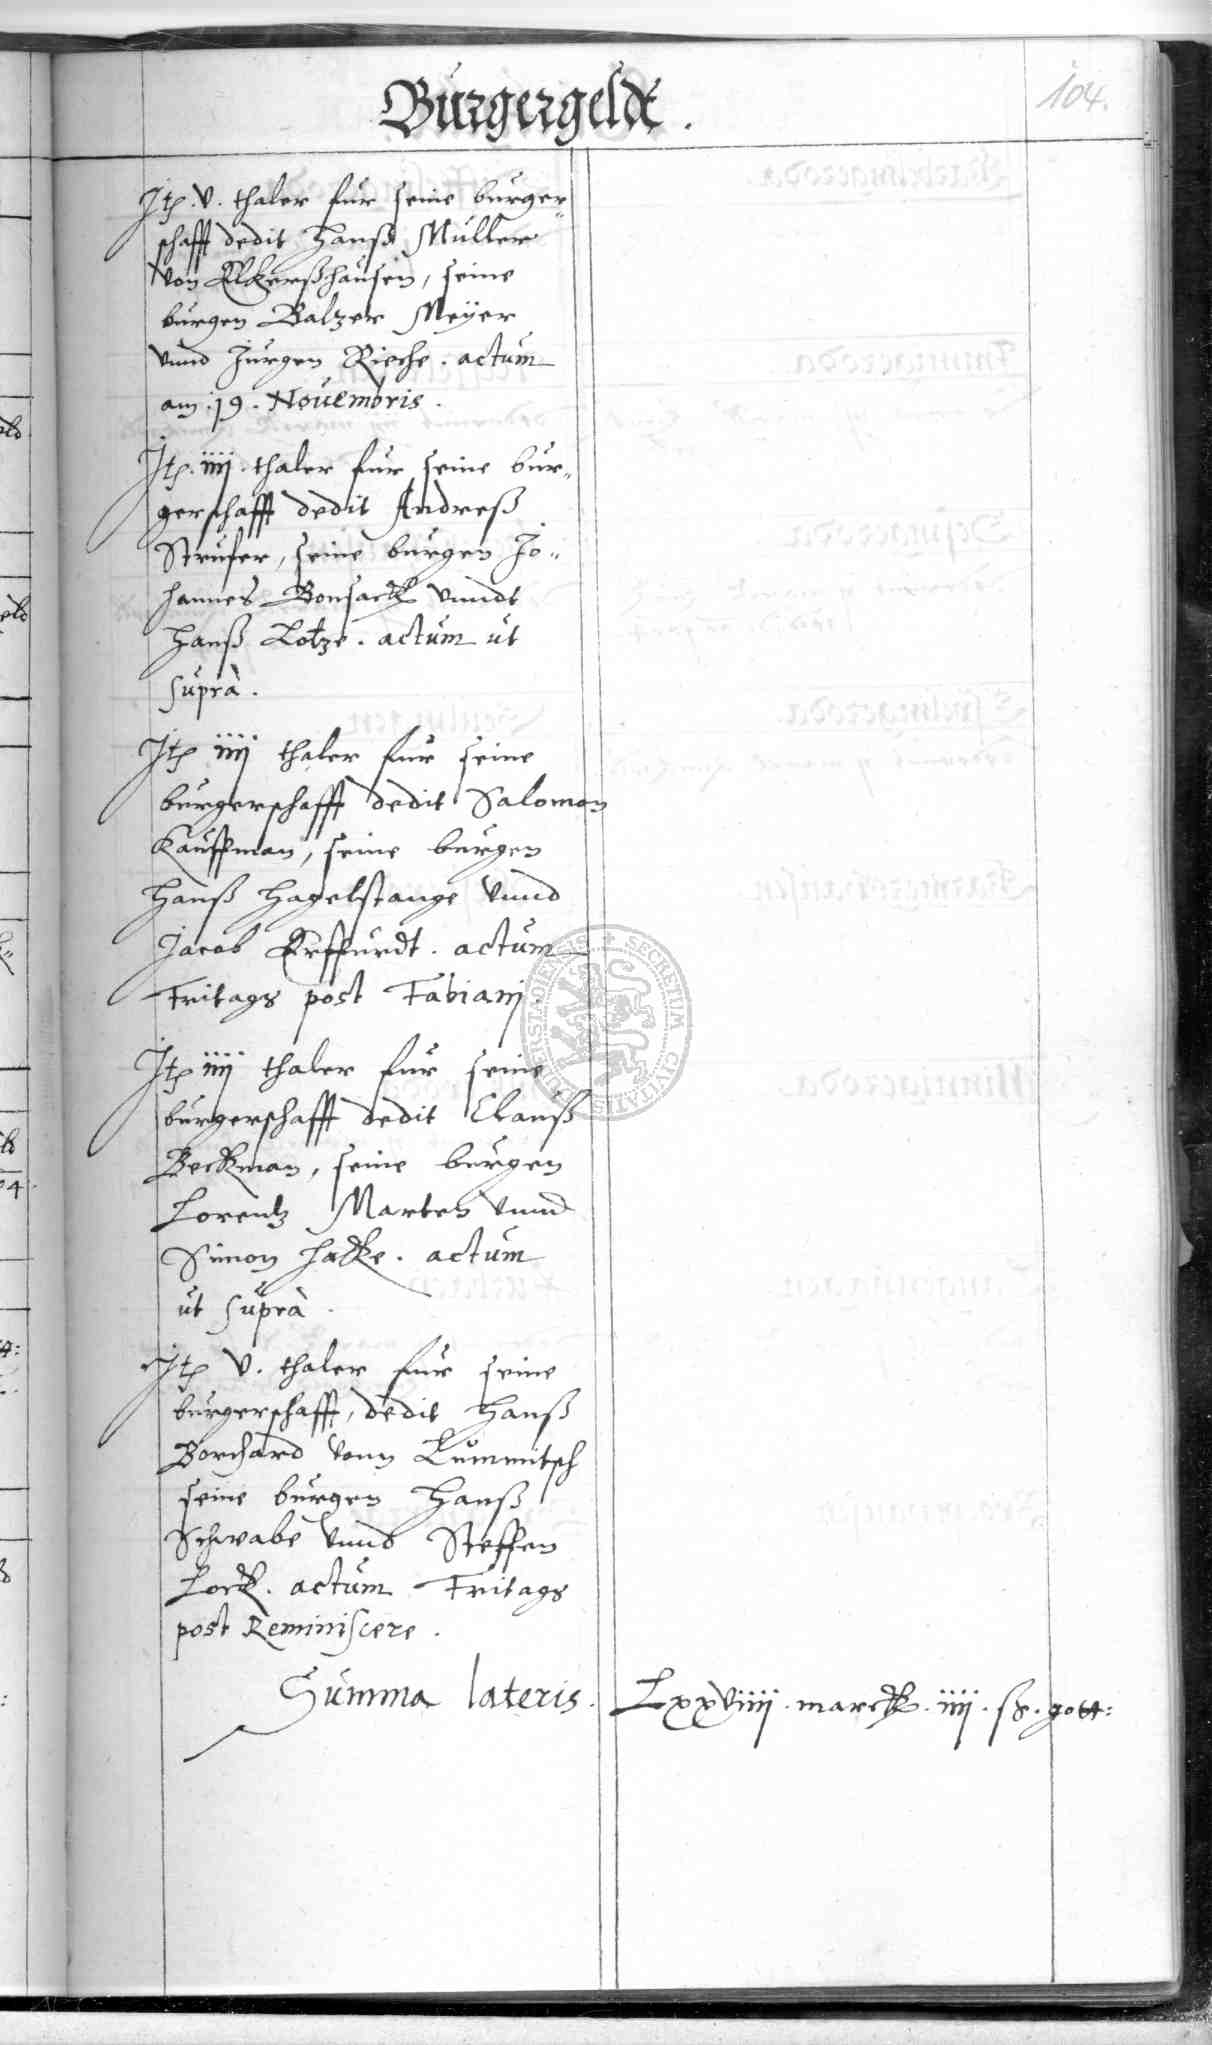 Burgergeldt.
104.
Itz. v. thaler fur seine burger=
schafft dedit Hanß Muller
von Elkerßhausen, seine
burgen Baltzer Meÿer
vnnd Jurgen Rieche. actum
am .19. Nouembris.
Itz. iiij. thaler fur seine bur=
gerschafft dedit Andreß
Strufer, seine burgen Jo=
hannes Bonsack vnndt
Hanß Lotze. actum ut
suprà.
Itz iiij thaler fur seine
burgerschafft dedit Salomon
Kauffman, seine burgen
Hanß Hagelstange vnnd
Jacob Erffurdt. actum
Fritags post Fabiani.
Itz iiij thaler fur seine
burgerschafft dedit Clauß
Beckman, seine burgen
Lorentz Marten vnnd
Simon Hacke. actum
ut suprà.
Itz v. thaler fur seine
burgerschafft, dedit Hanß
Borchard vonn Lummitsch
seine burgen Hanß
Schwabe vnnd Steffen
Lock. actum Fritags
post Reminiscere.
Summa lateris. Lxxviiij. marck. iiij. ß. gott:
SECRETUM CIVITATIS DUDERSTADIENSIS